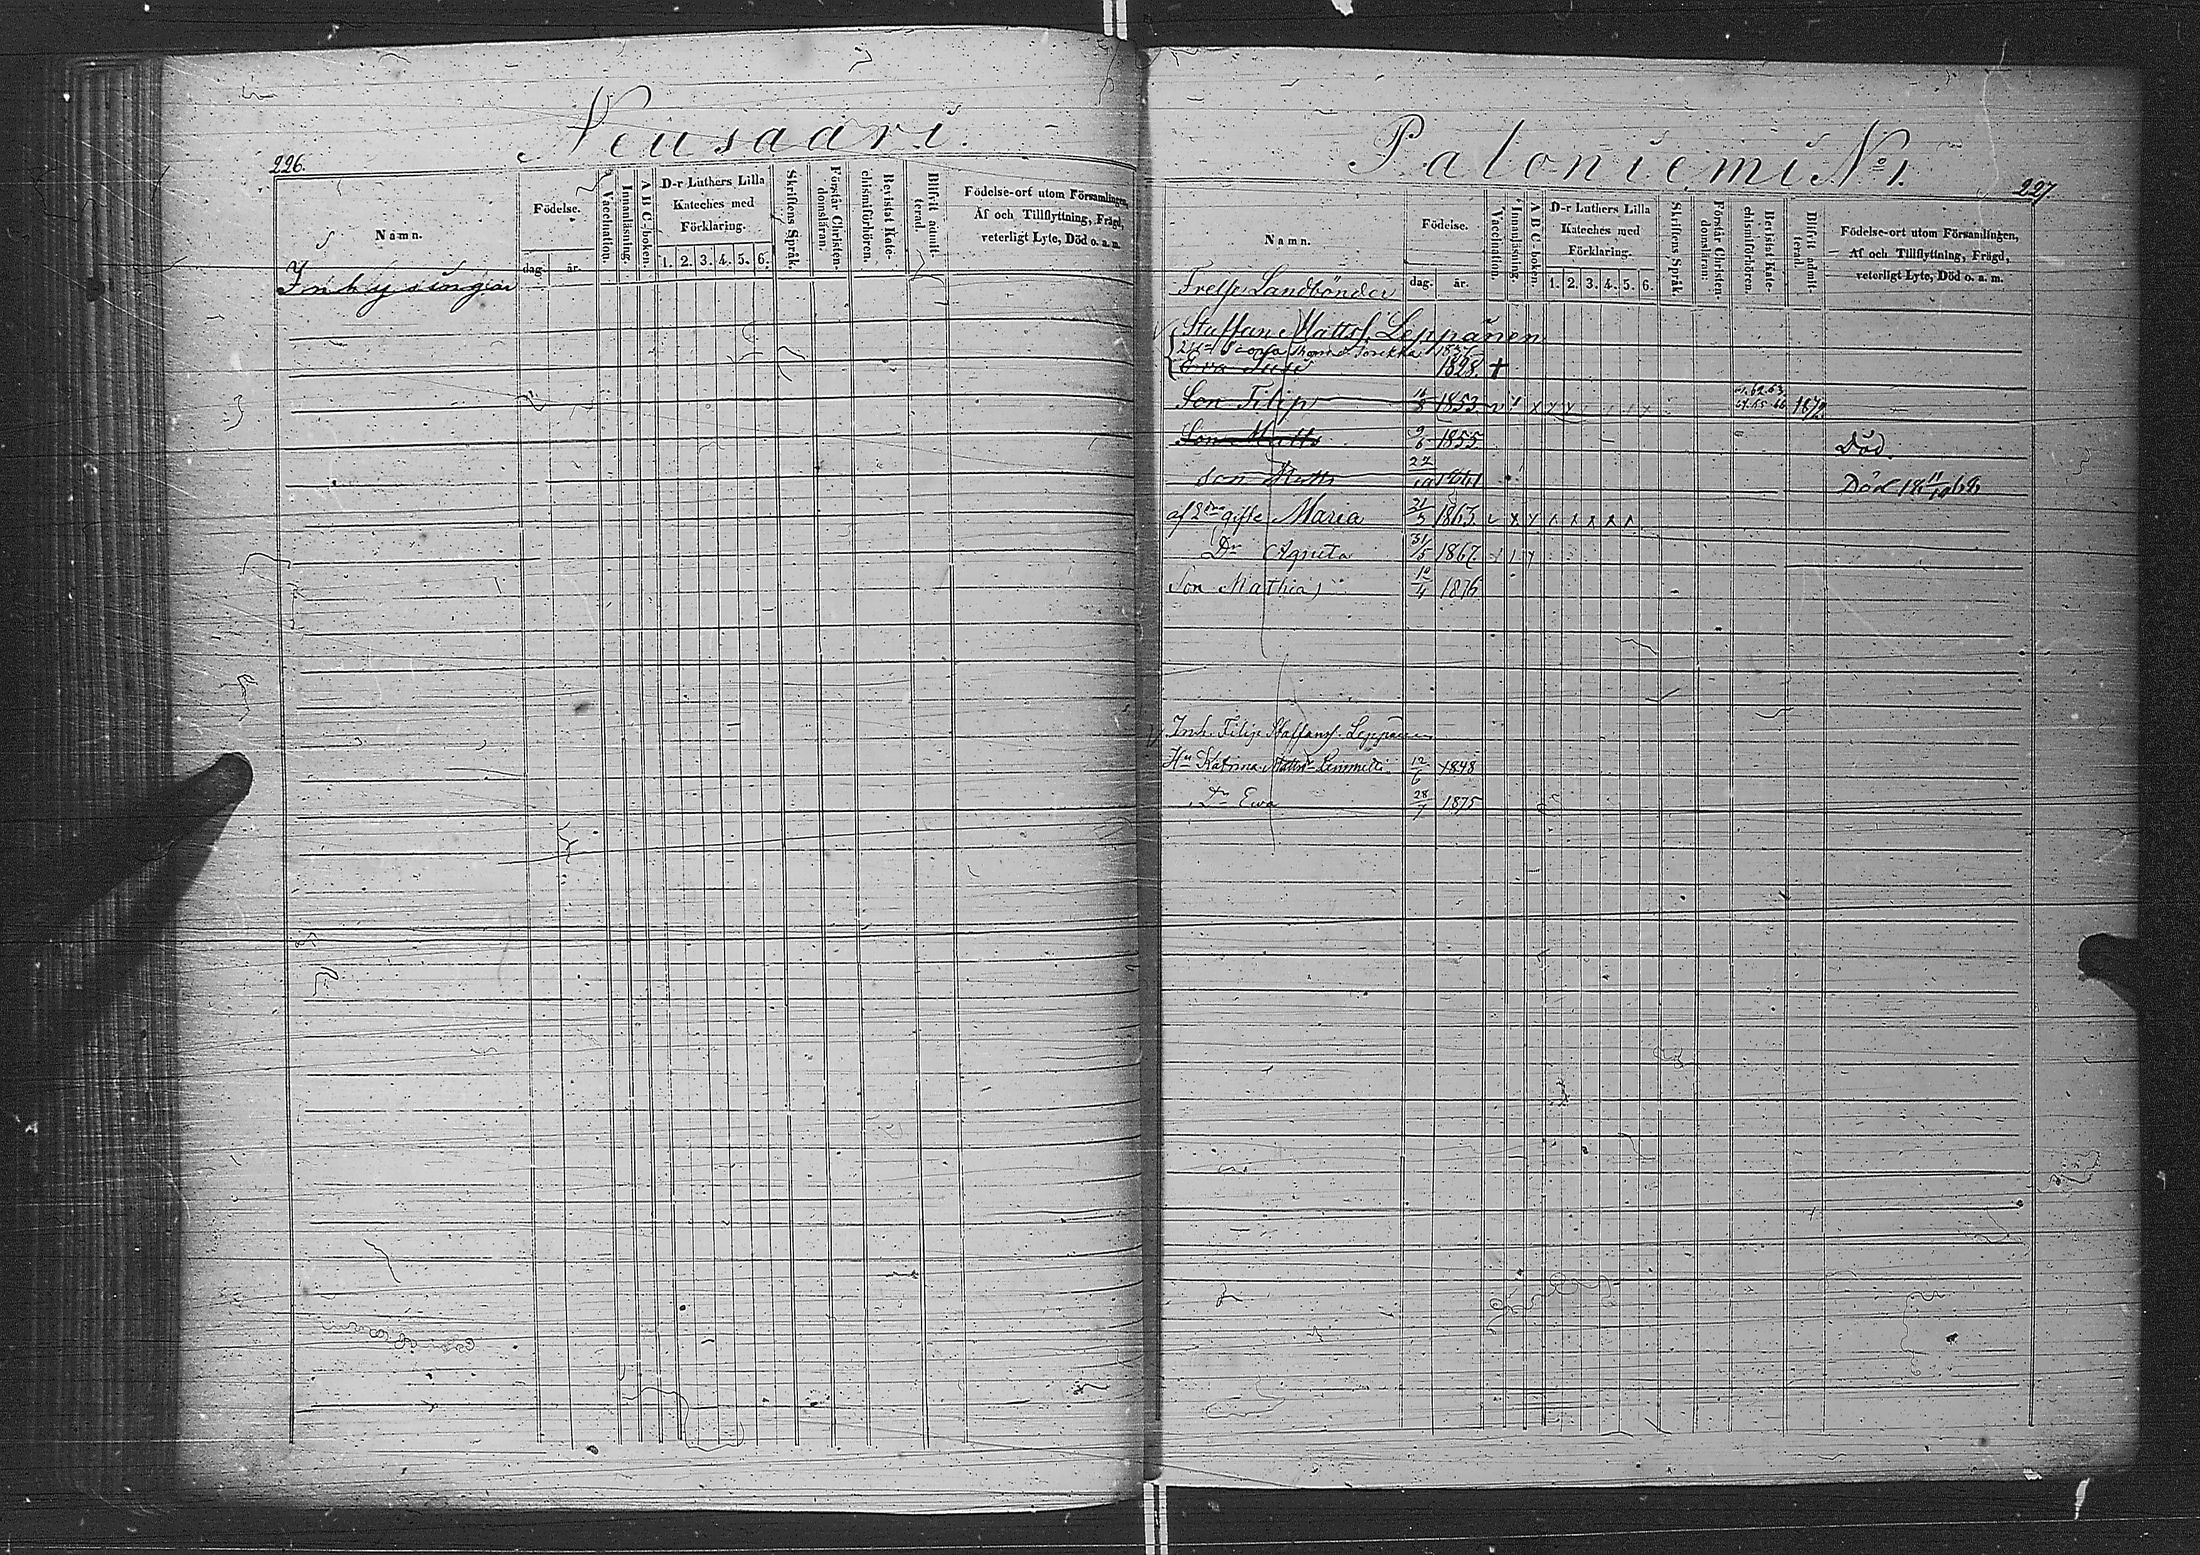 Neusaari.
226.
Namn.
Födelse.
dag. år.
Vaccination.
Innanläsning.
A B C-boken.
D-r Luthers Lilla
Kateches med
Förklaring.
1. 2. 3. 4. 5. 6.
Skriftens Språk.
Förstår Christen-
domsläran.
Bevistat Kate-
chismiförhören.
Blifvit admit-
terad.
Födelse-ort utom Församlingen,
Af och Tillflyttning, Frägd,
veterligt Lyte, Död o. a. m.
Inhysingar
Patoniemi No 1.
227.
Namn.
Födelse.
dag. år.
Vaccination.
Innanläsning.
A B C-boken.
D-r Luthers Lilla
Kateches med
Förklaring.
1. 2. 3. 4. 5. 6.
Skriftens Språk.
Förstår Christen-
domsläran.
Bevistat Kate-
chismiförhören.
Blifvit admit-
terad.
Födelse-ort utom Församlingen,
Af och Tillflyttning, Frägd,
veterligt Lyte, Död o. a. m.
Frelse Landbönder
Staffan Mattsf. Leppänen
1828 +
Son Filip 1853 1872
Son Matts 9/6 1855 Död.
Son Matts 27/10 1861 Död
af 2dra gifte Maria 31/3 1863
Dr Agneta 31/5 1867
Son Mathias 10/4 1876
Inh. Filip Staffansf. Leppänen
Hu Katrina Mattsdr Lemmitti 12/6 1848
Dr Ewa 28/7 1875